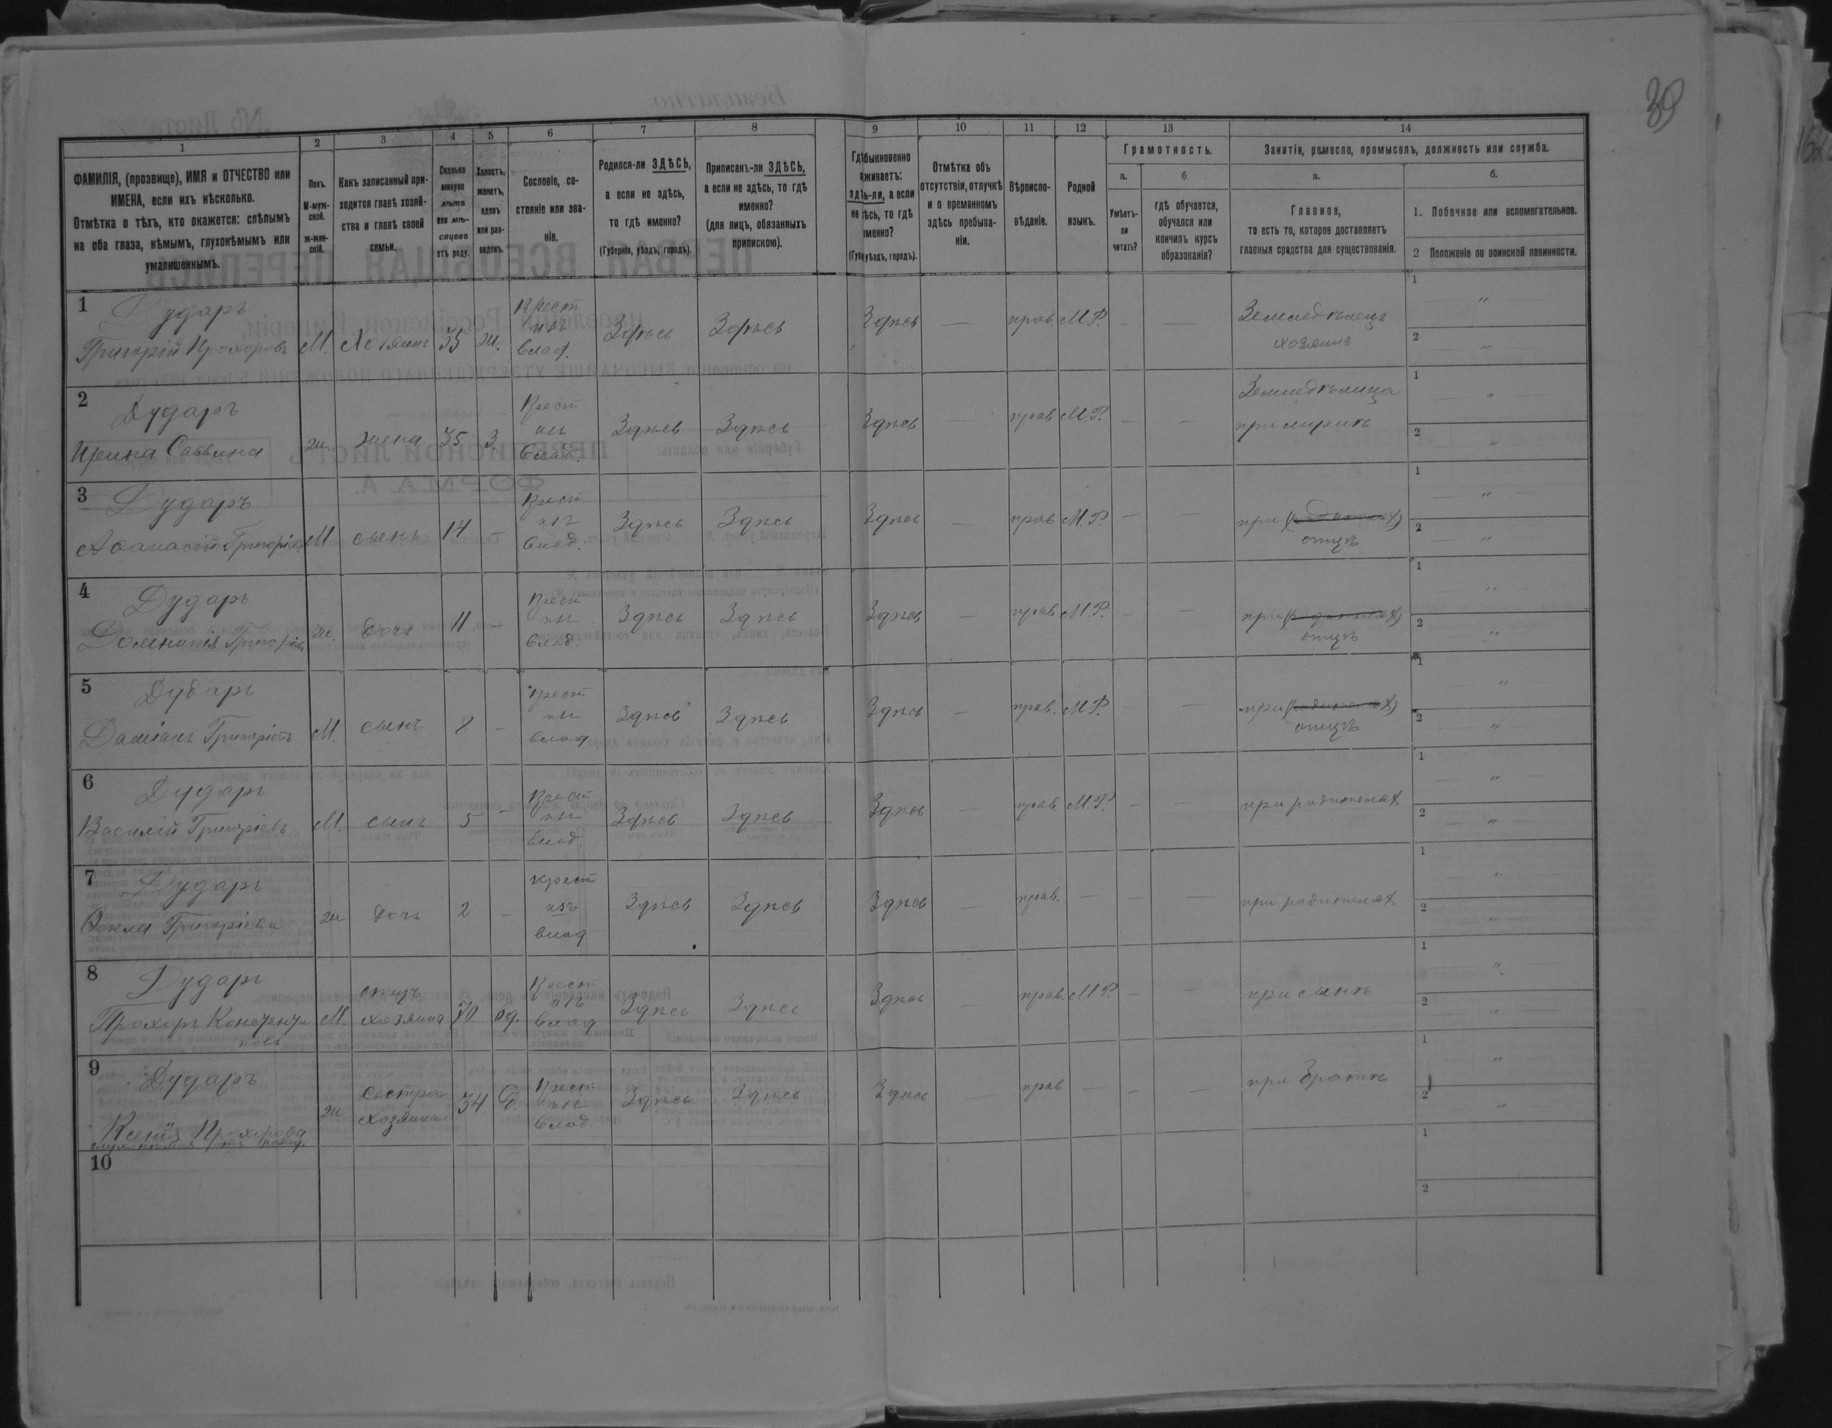 39
1 2 3 4 5 6 7 8 9 10 11 12 13 14
ФАМИЛІЯ, (прозвище), ИМЯ и ОТЧЕСТВО или
ИМЕНА, если ихъ нѣсколько.
Отмѣтка о тѣхъ, кто окажется: слѣпымъ
на оба глаза, нѣмымъ, глухонѣмымъ или
умалишеннымъ.
Полъ.
М-муж-
ской.
Ж-жен-
скій.
Какъ записанный при-
ходится главѣ хозяй-
ства и главѣ своей
семьи.
Сколько
минуло
лѣтъ
или мѣ-
сяцевъ
отъ роду.
Холостъ,
женатъ,
вдовъ
или раз-
веденъ.
Сословіе, со-
стояніе или зва-
ніе.
Родился-ли ЗДѢСЬ,
а если не здѣсь,
то гдѣ именно?
(Губернія, уѣздъ, городъ).
Приписанъ-ли ЗДѢСЬ,
а если не здѣсь, то гдѣ
именно?
(для лицъ, обязанныхъ
припискою).
Отмѣтка объ
отсутствіи, отлучкѣ
и о временномъ
здѣсь пребыва-
ніи.
Вѣроиспо-
вѣданіе.
Родной
языкъ.
Грамотность.
а.
Умѣетъ-
ли
читать?
б
гдѣ обучается,
обучался или
кончилъ курсъ
образованія?
Занятіе, ремесло, промыселъ, должность или служба.
а.
Главное,
то есть то, которое доставляетъ
главныя средства для существованія.
б.
1. Побочное или вспомогательное.
2 Положеніе по воинской повинности.
1 Дударь
Григорій Прохоровъ М. Хозяинъ 35 ж. Крест изъ влад. Здѣсь Здѣсь Здѣсь — прав М.Р. — — Земледѣлецъ хозяинъ
2 Дударь
Ирина Саввина ж. жена 35 З. Крест изъ влад. Здѣсь Здѣсь Здѣсь — прав М.Р. — — Земледѣлица при
3 Дударь
Аѳанасій М сынъ 14 — Крест изъ влад. Здѣсь Здѣсь Здѣсь — прав М.Р. — — при отцѣ
4 Дударь
ж. дочь 11 — Крест изъ влад. Здѣсь Здѣсь Здѣсь — прав М.Р. — — при отцѣ
5 Дударь
Даміанъ М. сынъ 8 — Крест изъ влад Здѣсь Здѣсь Здѣсь — прав. М.Р. — — при отцѣ
6 Дударь
Василій Григоріевъ М. сынъ 5 — Крест изъ влад. Здѣсь Здѣсь Здѣсь — прав М.Р. — — при родителях
7 Дударь
Ѳекла Григоріева ж дочь 2 — крест изъ влад Здѣсь Здѣсь Здѣсь — прав. — — — при родителях
8 Дударь
Прохоръ Константи
новъ М. отецъ хозяина 70 вд. Крест изъ влад Здѣсь Здѣсь Здѣсь — прав М.Р. — — при сынѣ
9 Дударь
Ксенія Прохорова ж сестра хозяина 34 Крест изъ влад. Здѣсь Здѣсь Здѣсь — прав — — — при братѣ
10